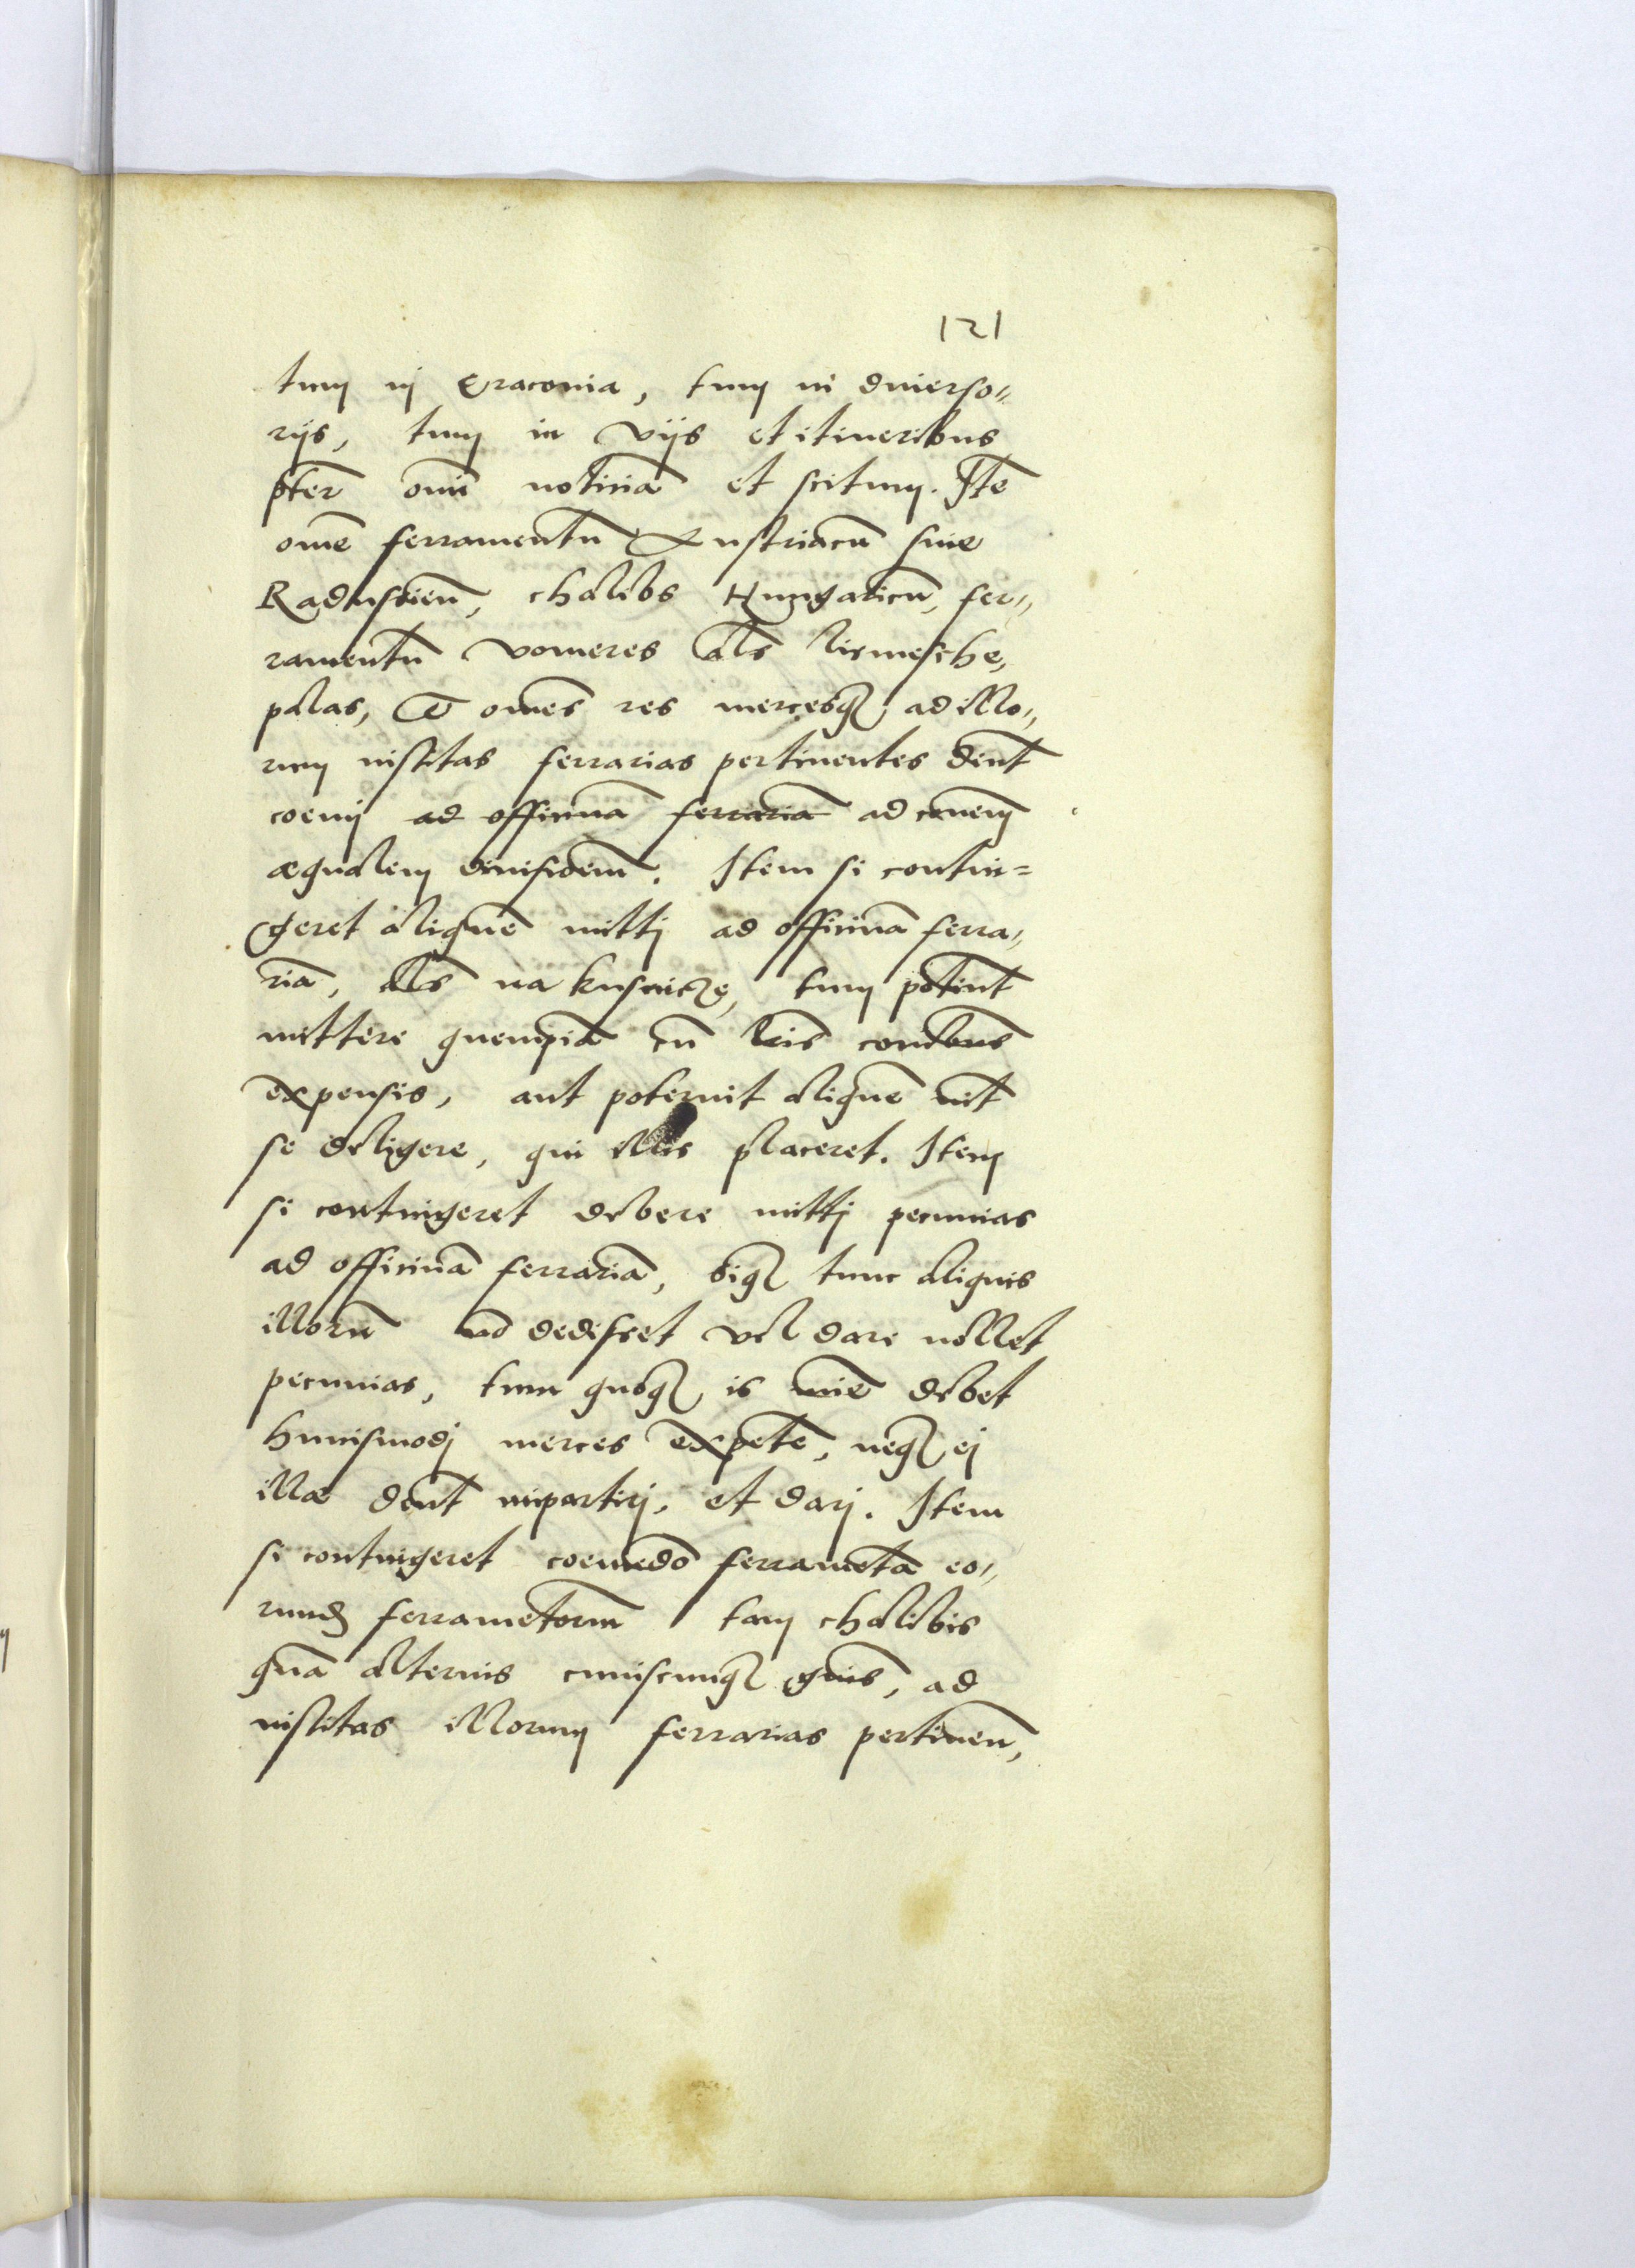 121
tum in Cracouia, tum in diuerso„
rijs, tum in vijs et itineribus
pter omē noticiā et scitum. Itē
omē ferramentū Austriacū siue
Raduscien̄, chalibs Hungaricū, fer„
ramentū vomeres als liemesche,
palas, et omēs res mercesq₃ ad illo„
rum institas ferrarias pertinentes dent̄
coemi ad officinā ferrariā ad com̄em
æqualem diuisioēm. Item si contin=
geret aliquē mitti ad officinā ferra„
riā, als na kusnicze, tum potint̄
mittere quempiā cū lris com̄bus
expensis, aut poterint aliquē int̄
se deligere, qui illis placeret. Item
si contingeret debere mitti pecunias
ad officinā ferrariā, siq₃ tunc aliquis
illorū nō dedisset vel dare nollet
pecunias, tum quoq₃ is miē debet
huiusmodi merces expetē, neq₃ ei
illæ dent̄ impartiri, et dari. Item
si contingeret coemēdo ferramēta eo„
rund₃ ferramētorum tam chalibis
quā alterius cuiuscunq₃ gnis̄, ad
institas illorum ferrarias pertinen̄,